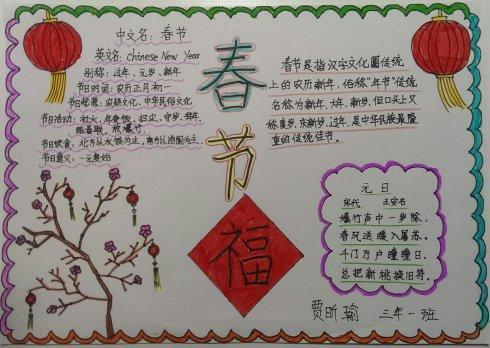 中文名：春节
英文名：Chinese New Year
别称：过年、元岁、新年
节日时间：农历正月初一
节日起源：农耕文化、中华民俗文化
节日活动：社火、年夜饭、扫尘、守岁、拜年、
贴春联、放爆竹
节日饮食：北方以水饺为主，南方以汤圆为主。
节日意义：一元复始
春节
春节是指汉字文化圈传统
上的农历新年，俗称“年节”，传统
名称为新年、大年、新岁，但口头上又
称度岁、庆新岁、过年，是中华民族最隆
重的传统佳节。
福
元日
宋代 王安石
爆竹声中一岁除，
春风送暖入屠苏。
千门万户曈曈日，
总把新桃换旧符。
贾昕瑜 三年一班